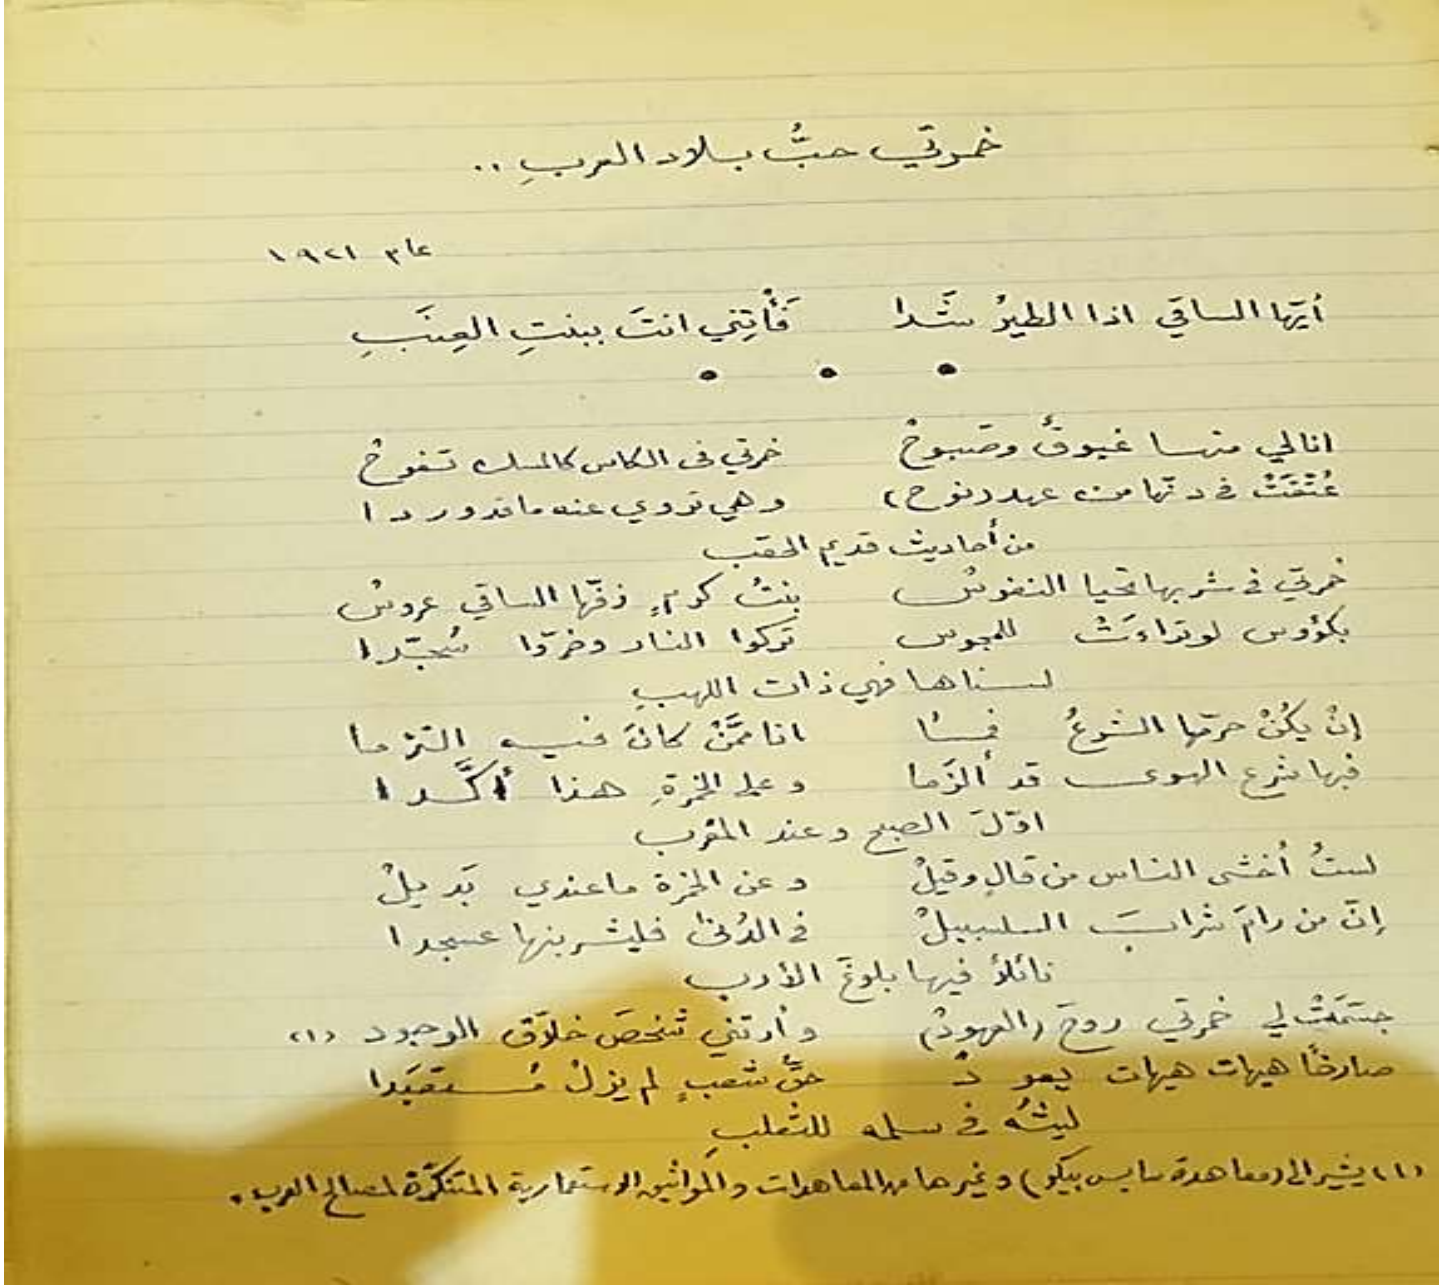 خمرتي حبُّ بلاد العربِ ..
عام ١٩٢١
أيّها الساقي اذا الطيرُ شَدا فَأْتِني انتَ ببنتِ العِنَبِ
• • •
انالي منها غبوقٌ وصَبوحْ خمرتي في الكاس كالمسك تفوحْ
عُتّقَتْ في دنّها من عهد (نوح) وهي تروي عنه ماقدوردا
من أحاديث قديم الحقب
خمرتي في شربها تحيا النفوسْ بنتُ كرمٍ زفّها الساقي عروسْ
بكؤوس لوتراءَتْ للمجوس تركوا النار وخرّوا سُجّدا
لسناها فهي ذات اللهبِ
إنْ يكُنْ حرّمها الشرعُ فما انا ممَّنْ كانَ فيه التزما
فبها شرع الهوى قد ألزَما وعلى الخمرةِ هذا أكَّدا
اوّلَ الصبح وعند المغرب
لستُ أخشى الناس من قالٍ وقيلْ وعن الخمرة ماعندي بَديلْ
إنّ من رامَ شرابَ السلسبيلْ في الدُنى فليشربنها عسجدا
نائلاً فيها بلوغَ الأرب
جسّمَتْ لي خمرتي روحَ (العهودْ) وأرتني شخصَ خلاّق الوجود (١)
صارخًا هيهات هيهات يعودْ حقُّ شعبٍ لم يزلْ مُستعبَدا
ليثُه في سلمه للثعلبِ
(١) يشير الى (معاهدة سايس بيكو) وغيرها من المعاهدات والمواثيق الاستعمارية المتنكّرة لمصالح العرب.